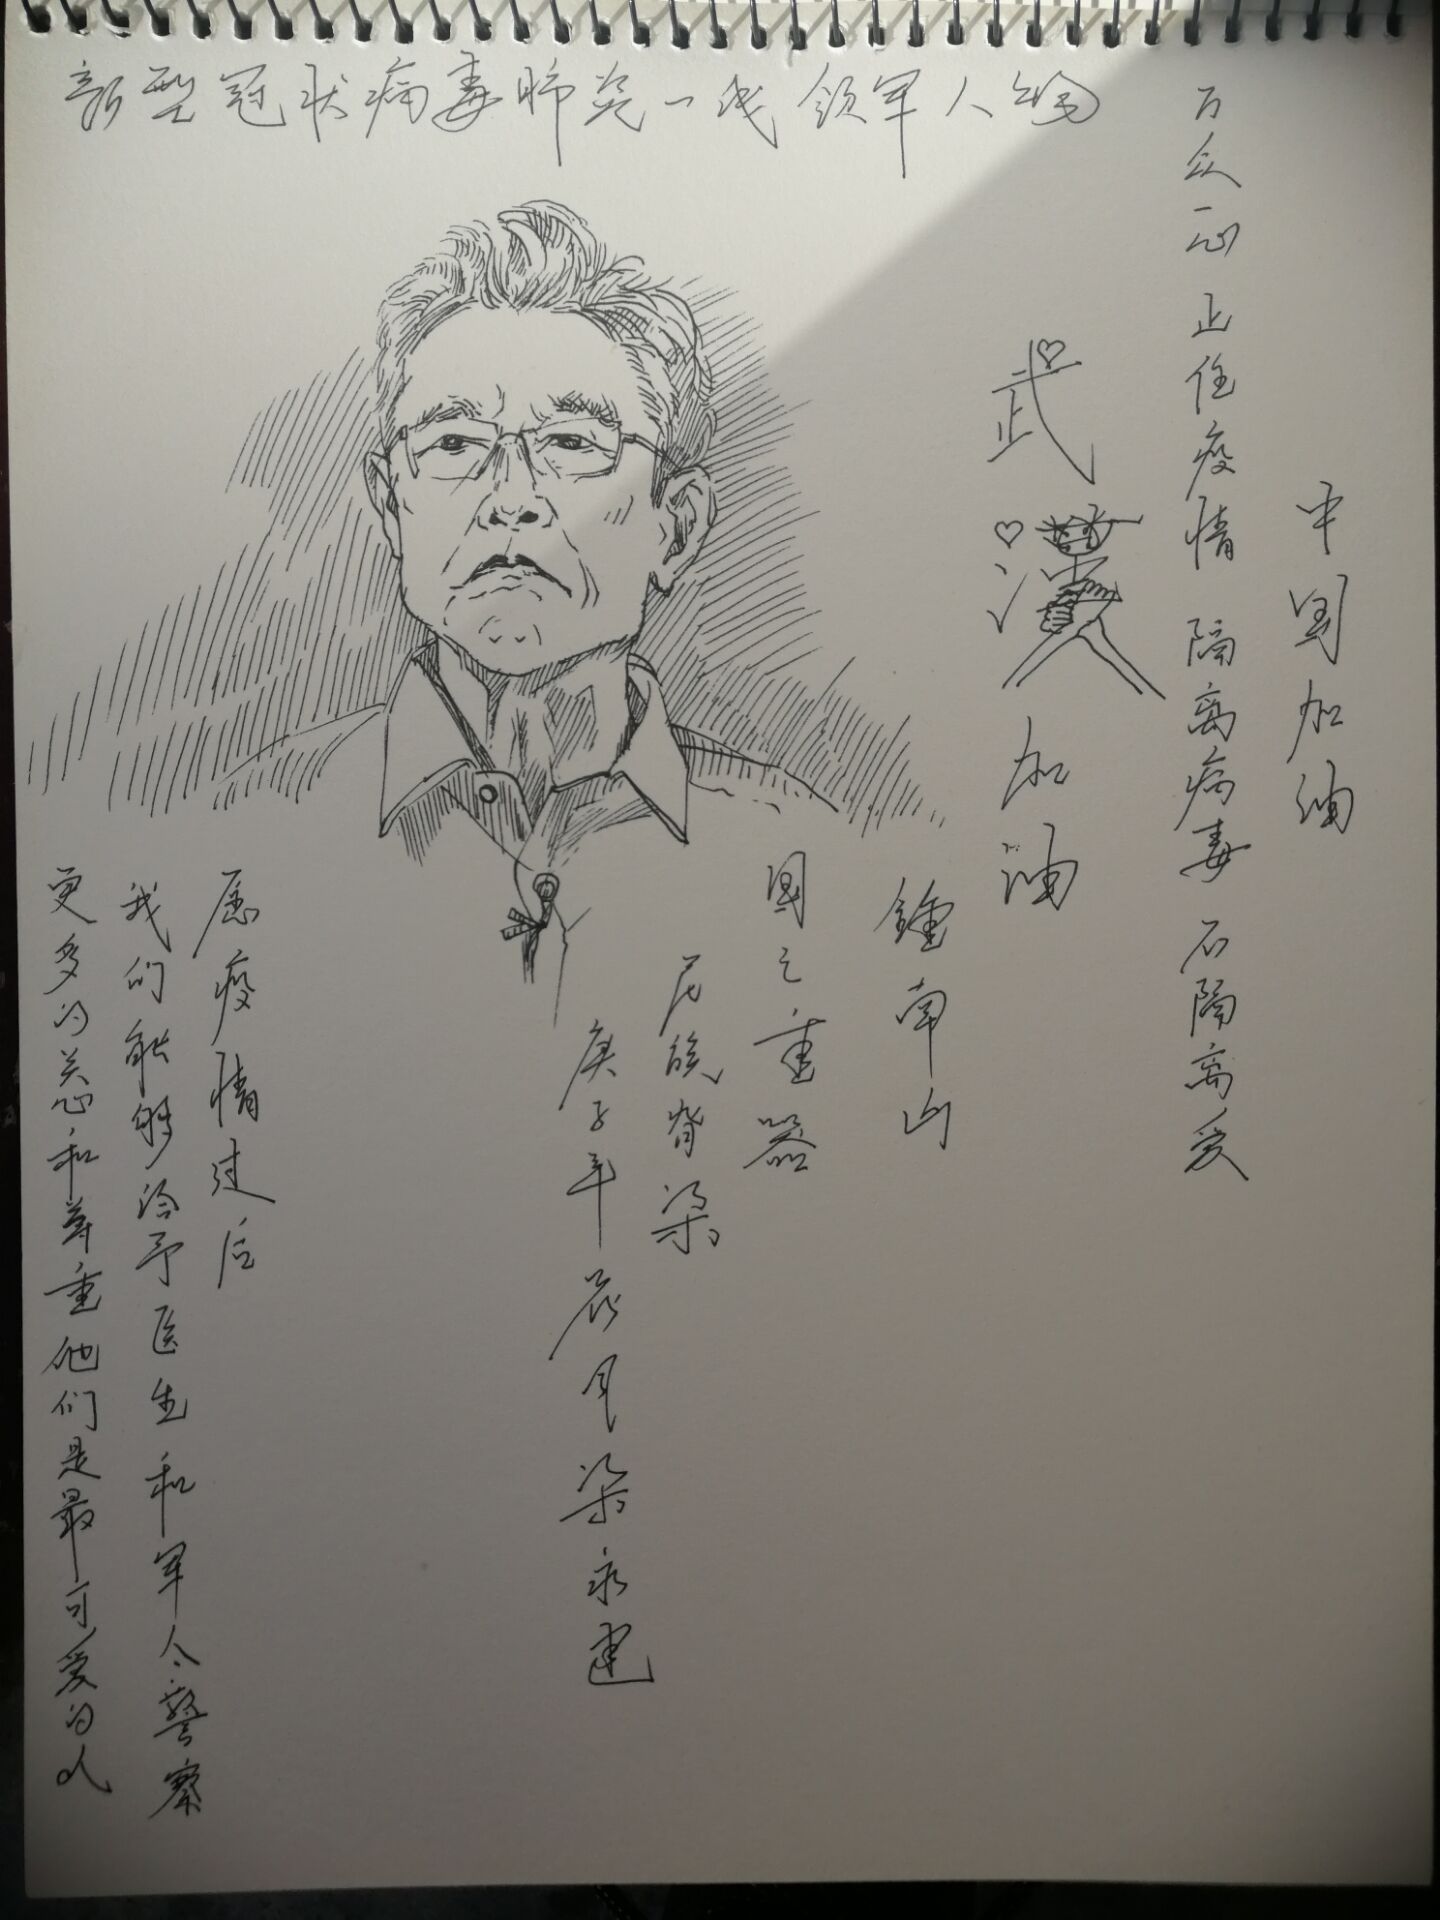 新型冠状病毒肺炎一线领军人物
中国加油
万众一心 止住疫情 隔离病毒 不隔离爱
武漢加油
鍾南山
國之重器
民族脊梁
庚子年 辰月 梁永建
愿疫情过后
我们能够给予医生和军人警察
更多的关心和尊重他们是最可爱的人